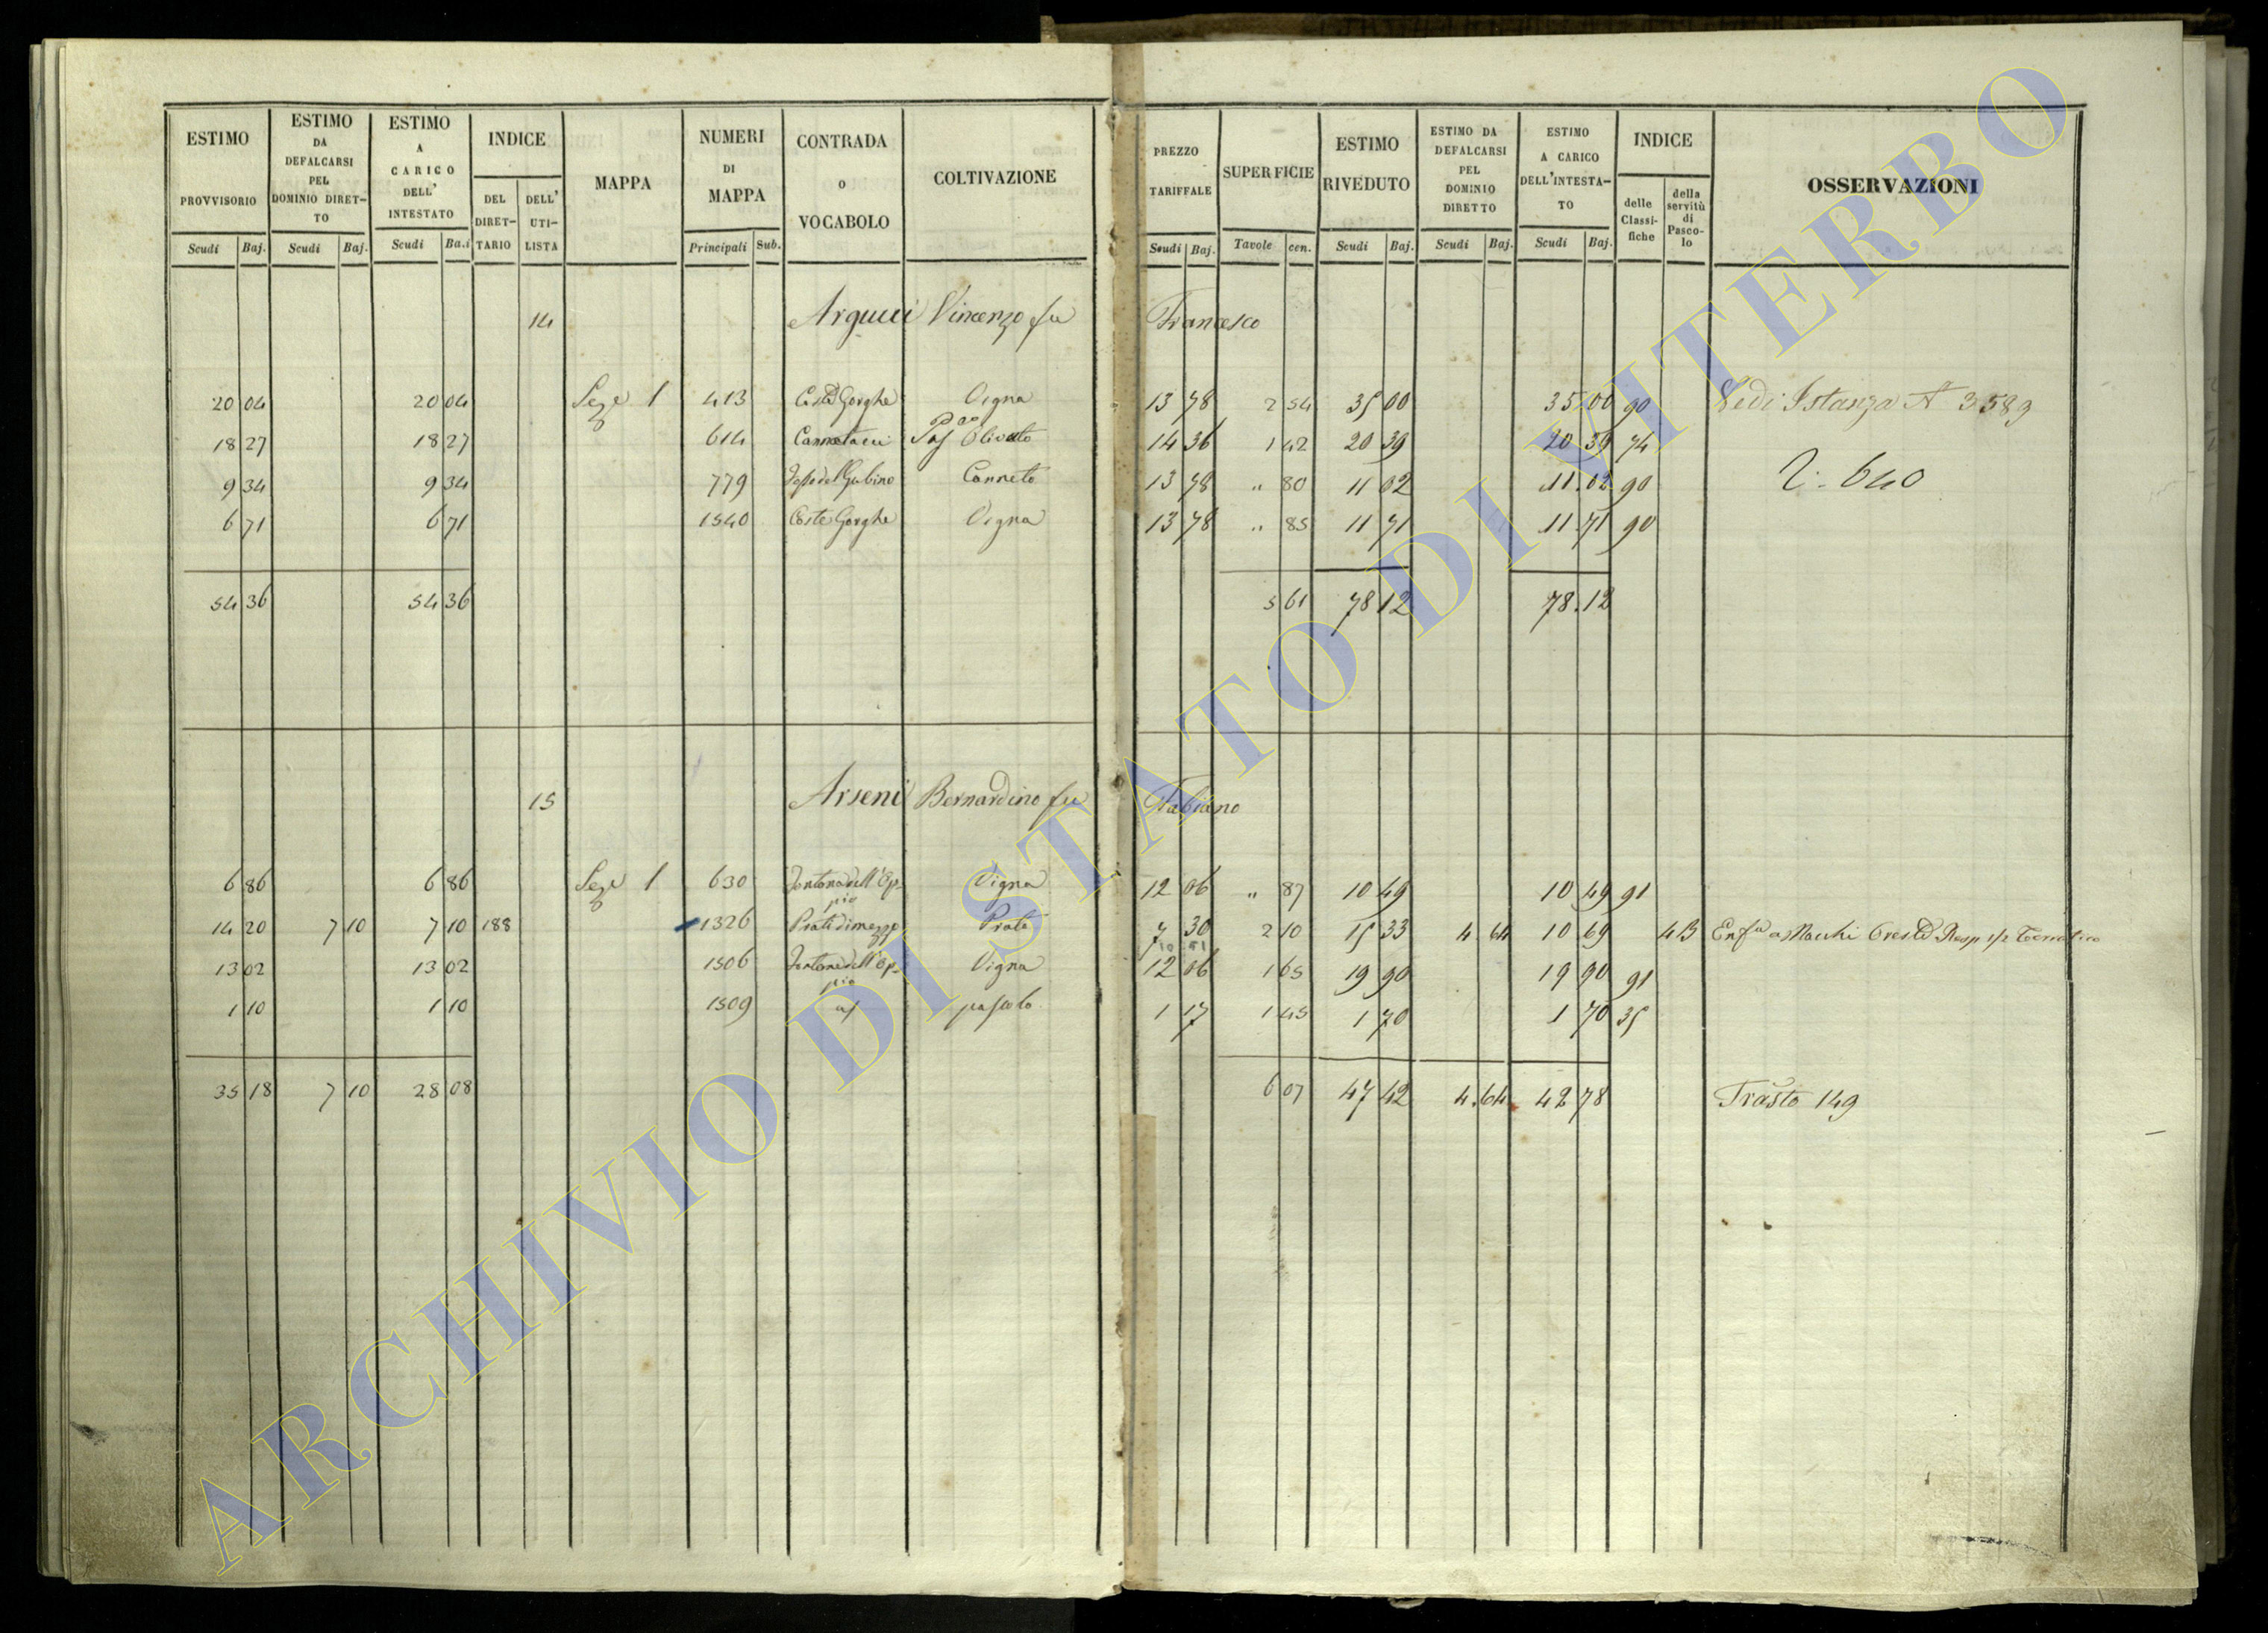 ESTIMO PROVVISORIO
ESTIMO DA DEFALCARSI PEL DOMINIO DIRET-TO
ESTIMO A CARICO DELL' INTESTATO
INDICE
DEL DIRET-TARIO
DELL' UTI-LISTA
MAPPA
NUMERI DI MAPPA
CONTRADA O VOCABOLO
COLTIVAZIONE
PREZZO TARIFFALE
SUPERFICIE
ESTIMO RIVEDUTO
ESTIMO DA DEFALCARSI PEL DOMINIO DIRETTO
ESTIMO A CARICO DELL'INTESTA-TO
INDICE
delle Classi-fiche
della servitù di Pasco-lo
OSSERVAZIONI
Scudi Baj. Scudi Baj. Scudi Ba.i Principali Sub. Scudi Baj. Tavole cen. Scudi Baj. Scudi Baj. Scudi Baj.
14 Argucci Vincenzo fu Francesco
20 04 20 04 Seze 1 413 Coste Gorghe Vigna 13 78 2 54 35 00 35 00 90 Vedi Istanza N 3589
18 27 18 27 614 Olivato 14 36 1 42 20 39 20 39 74
9 34 9 34 779 Canneto 13 78 " 80 11 02 11.02 90 V. 640
6 71 6 71 1540 Coste Gorghe Vigna 13 78 " 85 11 71 11 71 90
54 36 54 36 5 61 78 12 78.12
15 Arseni Bernardino fu Fabiano
6 86 6 86 Seze 1 630 Fontana dell'Op-pio Vigna 12 06 " 87 10 49 10 49 91
14 20 7 10 7 10 188 1326 Prati di mezzo Prato 7 30 2 10 15 33 4 64 10 69 43 Enfta a Macchi Oreste Resp 1/2
13 02 13 02 1506 Fontana dell'Op-pio Vigna 12 06 1 65 19 90 19 90 91
1 10 1 10 1509 pascolo 1 17 1 45 1 70 1 70 35
35 18 7 10 28 08 6 07 47 42 4.64 42 78 Trasto 149
ARCHIVIO DI STATO DI VITERBO